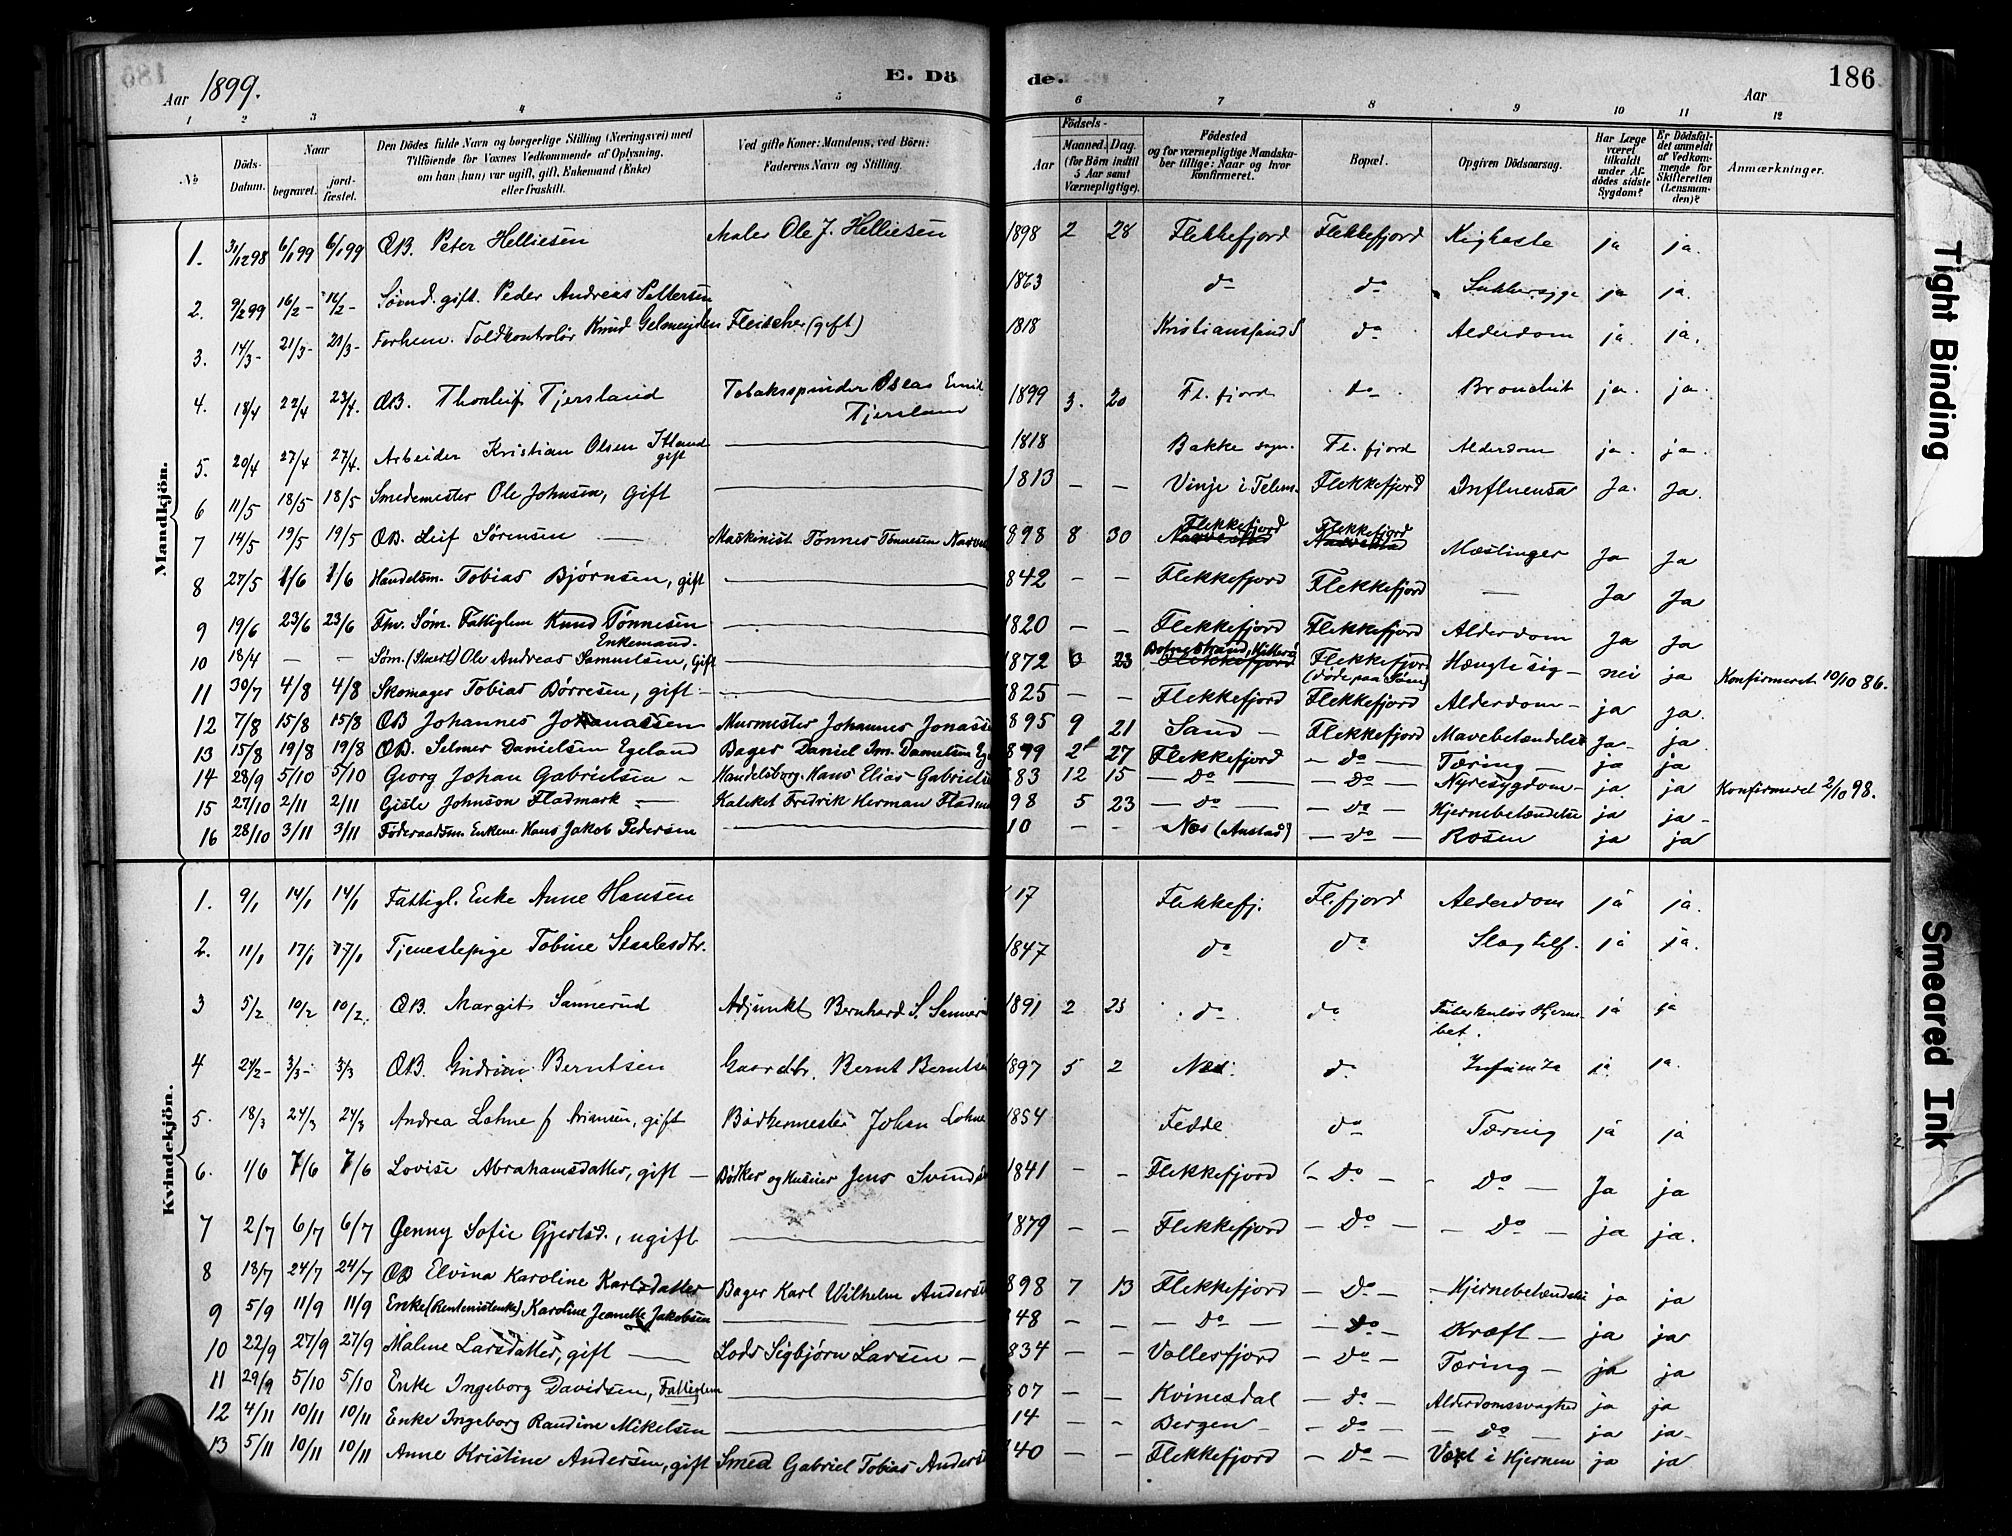 186
Aar 1899.
E. Dö de.
Aar
1 2 3 4 5 6 7 8 9 10 11 12
No
Döds-Datum.
Naar begravet. jordfæstet.
Den Dödes fulde Navn og borgerlige Stilling (Næringsvei) med Tilföiende for Voxnes Vedkommende af Oplysning, om han (hun) var ugift, gift, Enkemand (Enke) eller fraskilt.
Ved gifte Koner: Mandens, ved Börn: Faderens Navn og Stilling.
Födsels- Aar Maaned. Dag. (for Börn indtil 5 Aar samt Værnepligtige).
Födested og for værnepligtige Mandskaber tillige: Naar og hvor konfirmeret.
Bopæl.
Opgiven Dödsaarsag.
Har Læge været tilkaldt under Afdödes sidste Sygdom?
Er Dödsfaldet anmeldt af Vedkommende for Skifteretten (Lensmanden)?
Anmærkninger.
Mandkjön.
1. 31/12 98 6/1 99 6/1 99 ÆB. Peter Helliesen Maler Ole J. Helliesen 1898 2 28 Flekkefjord Flekkefjord Kighoste ja ja.
2. 9/2 99 16/2 - 16/2 - Sømd. gift. Peder Andreas Pettersen 1863 do do Sukkersyge ja ja.
3. 14/3 - 21/3 - 21/3 - Forhem. Toldkontrolør Knud Gelmeyden Fleischer (gift) 1818 Kristianssand S do Alderdom ja. ja.
4. 18/4 22/4 23/4. ÆB. Thorleif Tjersland Tobaksspinder Emil Tjersland 1899 3. 20 Fl. fjord do. Bronchit ja. ja.
5. 20/4 27/4 27/4. Arbeider Kristian Olsen gift 1818 Bakke sogn. Fl. fjord Alderdom ja. ja.
6 11/5 18/5 18/5 Smedemester Ole Johnsen, Gift 1813 - - Vinje i Telem. Flekkefjord Influensa Ja. Ja.
7 14/5 19/5 19/5 ÆB. Leif Sørensen Maskinist Tønnes Tønnesen 1898 8 30 Flekkefjord Flekkefjord Mæslinger Ja Ja
8 27/5 1/6 1/6 Handelsm. Tobias Bjørnsen, gift 1842 - - Flekkefjord Flekkefjord - Ja Ja
9 19/6 23/6 23/6 Fhv. Søm. Fattiglem Knud Tønnesen Enkemand. 1820 - - Flekkefjord Flekkefjord Alderdom Ja Ja
10 18/4 - - Søm. Ole Andreas Samuelsen, Gift 1872 23 Flekkefjord Flekkefjord (døde paa Søen) Hængte sig - nei ja Konfirmeret 10/10 86.
11 30/7 4/8 4/8 Skomager Tobias Børresen, gift - 1825 - - Flekkefjord Flekkefjord Alderdom - ja ja.
12 7/8 15/8 15/8 ÆB Johannes Murmester Johannes 1895 9 21 Sand - Flekkefjord Mavebetændelse Ja - ja
13 15/8 19/8 19/8 ÆB. Selmer Danielsen Egeland Bager Daniel Im. Danielsen 899 2 27 Flekkefjord - do - Tæring - ja ja
14 28/9 5/10 5/10 Georg Johan Gabrielsen - Handelsborg. Hans Elias 83 12 15 - do - - do - Nyresygdom - ja ja Konfirmeret 2/10 98.
15 27/10 2/11 2/11 Gisle Johnson Fladmark - Kateket Fredrik Herman 98 5 23 - do - - do - Hjernebetændelse ja ja -
16 28/10 3/11 3/11 Føderaadsm. Enkem. Hans Jakob Pedersen 10 - - Næs (Anstad) - do - Rosen ja ja
Kvindekjön.
1. 9/1 14/1 14/1 Fattigl. Enke Anne Hansen 17 Flekkefj. Fl.fjord Alderdom ja ja.
2. 11/1 17/1 17/1 Tjenestepige Tobine Staalesdtr. 1847 do do Slagtilf. ja ja.
3 5/2 10/2 10/2. ÆB. Margit Sannerud Adjunkt Bernhard S. 1891 2 23 do. do Tuberkuløs Hjernebet. ja ja
4 24/2 - 3/3 - 3/3 ÆB. Gudrun Berntsen Gaardbr. Bernt Berntsen 1897 5 2 Næs. do ja ja.
5. 18/3 24/3 24/3 Andrea Lohne f Ariansen, gift Bødkermester Johan Lohne 1854 Fedde. do Tæring ja ja
6. 1/6 7/6 7/6 Lovise Abrahamsdatter, gift - Bødker og Kusier Jens 1841 - - Flekkefjord - do - - do - Ja ja
7 2/7 6/7 6/7 Jenny Sofie Gjertsd., ugift 1879 - - Flekkefjord - do - - do - ja ja.
8 18/7 24/7 24/7 ÆB Elvina Karoline Karlsdatter Bager Karl Wilhelm 898 7 13 Flekkefjord - do - - Hjernebetændelse ja ja
9 5/9 11/9 11/9 Enke (Rentenistenke) Karoline Jeanette Jakobsen 48 - - - do - - do - Kræft - ja ja
10 22/9 27/9 27/9 Maline Larsdatter, gift - Lods Sigbjørn Larsen - 834 - - Vollesfjord - do - Tæring - ja ja
11 29/9 5/10 5/10 Enke Ingeborg Davidsen, Fattiglem 07 - - Kvinesdal - do - Alderdomssvaghed ja ja
12 4/11 10/11 10/11 Enke Ingeborg Randine Mikelsen 14 - - Bergen - - do - - do - ja ja -
13 5/11 10/11 10/11 Anne Kristine Andersen, gift Smed Gabriel Tobias 40 - - Flekkefjord - do - Væxt i Hjernen ja ja
Tight Binding
Smeared Ink